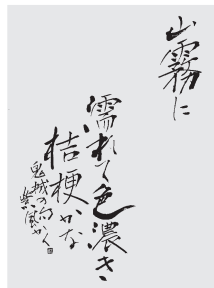 山霧に
濡れて色濃き
桔梗かな
鬼城の句かく